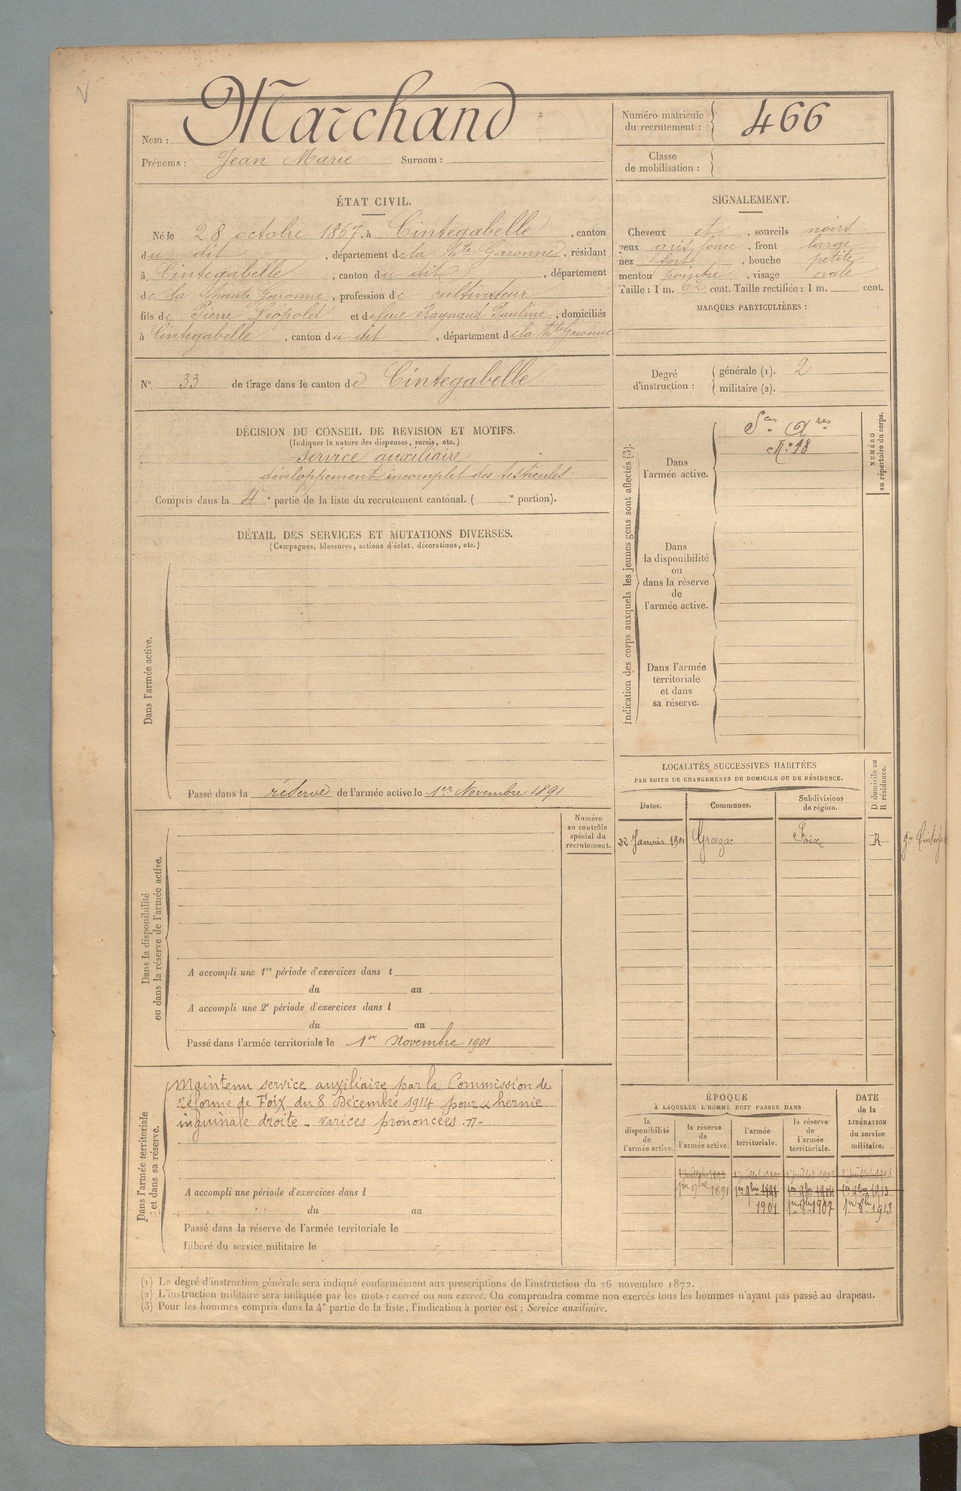 Nom : Marchand
Prénoms : Jean Marie Surnom :
Numéro matricule du recrutement : 466
Classe de mobilisation :
ÉTAT CIVIL.
Né le 28 octobre 1867, à Cintegabelle, canton
du dit, département de la Hte Garonne, résidant
à Cintegabelle, canton du dit, département
de la haute Garonne, profession de cultivateur
fils de Pierre Léopold et de feue Raynaud Pauline, domiciliés
à Cintegabelle, canton du dit, département de la Hte Garonne
SIGNALEMENT.
Cheveux et, sourcils noirs
yeux gris foncé, front large
nez fort, bouche petite
menton pointu, visage ovale
Taille : 1 m. cent. Taille rectifiée : 1 m. cent.
MARQUES PARTICULIÈRES :
N° 33 de tirage dans le canton de Cintegabelle
Degré d'instruction :
générale (1). 2
militaire (2).
DÉCISION DU CONSEIL DE REVISION ET MOTIFS.
(Indiquer la nature des dispenses, sursis, etc.)
Service auxiliaire
développement incomplet des testicules
Compris dans la 4e partie de la liste du recrutement cantonal. ( e portion).
DÉTAIL DES SERVICES ET MUTATIONS DIVERSES.
(Campagnes, blessures, actions d'éclat, décorations, etc.)
Dans l'armée active.
Passé dans la réserve de l'armée active le 1er Novembre 1891
Indication des corps auxquels les jeunes gens sont affectés (3).
NUMÉRO au répertoire du corps.
Dans l'armée active.
Ses Axres
N° 18
Dans la disponibilité ou dans la réserve de l'armée active.
Dans l'armée territoriale et dans sa réserve.
LOCALITÉS SUCCESSIVES HABITÉES
PAR SUITE DE CHANGEMENTS DE DOMICILE OU DE RÉSIDENCE.
Dates. Communes. Subdivisions de région. D domicile ou R résidence.
22 Janvier 1901 Grazac Foix R
Numéro au contrôle spécial du recrutement.
Dans la disponibilité ou dans la réserve de l'armée active.
A accompli une 1re période d'exercices dans l
du au
A accompli une 2e période d'exercices dans l
du au
Passé dans l'armée territoriale le 1er Novembre 1901
Dans l'armée territoriale et dans sa réserve.
Maintenu service auxiliaire par la Commission de
réforme de Foix du 8 Décembre 1914 pour hernie
inguinale droite - varices prononcées
A accompli une période d'exercices dans l
du au
Passé dans la réserve de l'armée territoriale le
Libéré du service militaire le
ÉPOQUE
À LAQUELLE L'HOMME DOIT PASSER DANS
la disponibilité de l'armée active. la réserve de l'armée active. l'armée territoriale. la réserve de l'armée territoriale.
DATE de la LIBÉRATION du service militaire.
1er 9bre 1891
1901
(1) Le degré d'instruction générale sera indiqué conformément aux prescriptions de l'instruction du 26 novembre 1872.
(2) L'instruction militaire sera indiquée par les mots : exercé ou non exercé. On comprendra comme non exercés tous les hommes n'ayant pas passé au drapeau.
(3) Pour les hommes compris dans la 4e partie de la liste, l'indication à porter est : Service auxiliaire.